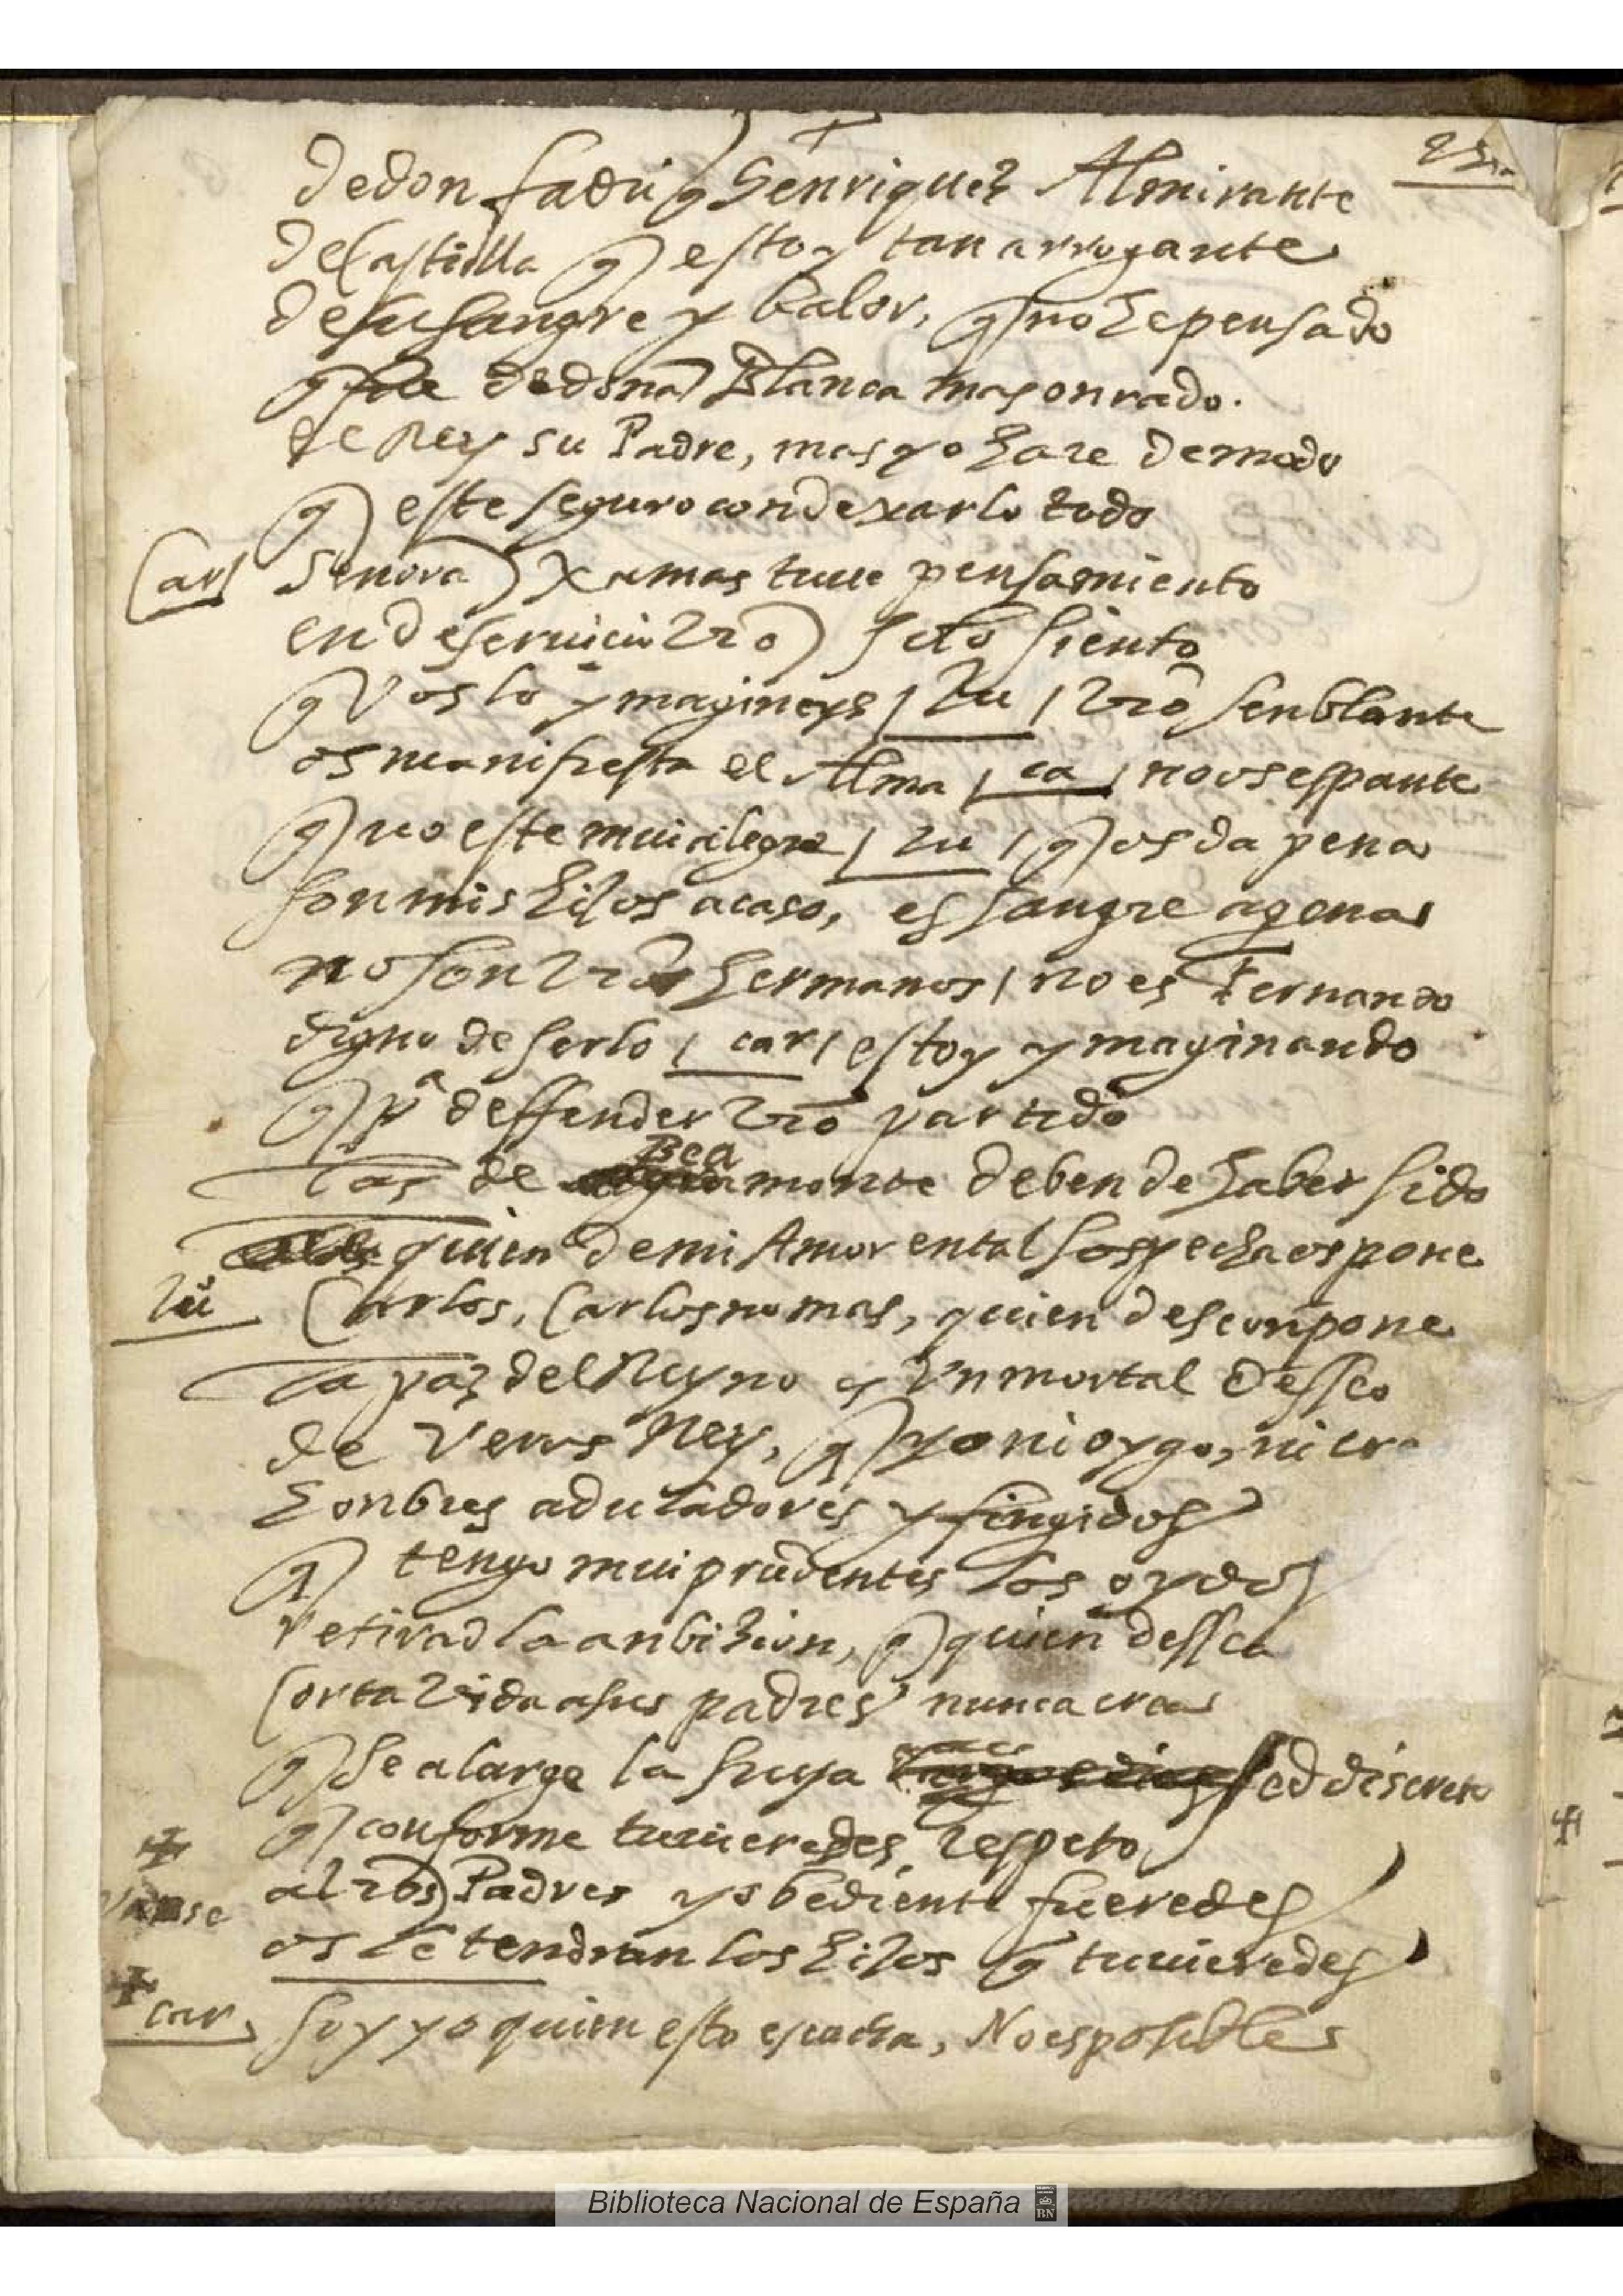 de don fadriq henriquez Almirante
de Castilla q estoy tan arrogante
de su sangre y balor, q no he pensado
q fue de doña Blanca mas onrado.
el Rey su Padre, mas yo hare de modo
q este seguro con dexarlo todo
Car / Señora xamas tuue pensamiento
en deseruicio vro solo siento
q vos lo ymagineys / Zu / vro senblante
os manifiesta el Alma / ca / no os espante
q no este mui alegre / Zu / q os da pena
son mis hijos acaso, es sangre agena
no son vros hermanos / no es Fernando
digno de serlo / car / estoy ymaginando
q pa deffender vro partido
los de Beamonte deben de haber sido
quien de mi Amor en tal sospecha os pone
Zu Carlos, Carlos no mas, quien desconpone
la paz del Reyno es vn mortal desseo
de veros Rey, q yo ni oygo, ni cre
honbres aduladores y fingidos
q tengo mui prudentes los oydos
retirad la anbizion, q quien dessea
corta vida a sus padres nunca crea
q se alarge la suya sed discreto
q conforme tuuieredes respeto
a vros Padres y obediente fueredes
Vanse
os le tendran los hijos q tuuieredes
car, soy yo quien esto escucha, No es posible
Biblioteca Nacional de España
BN